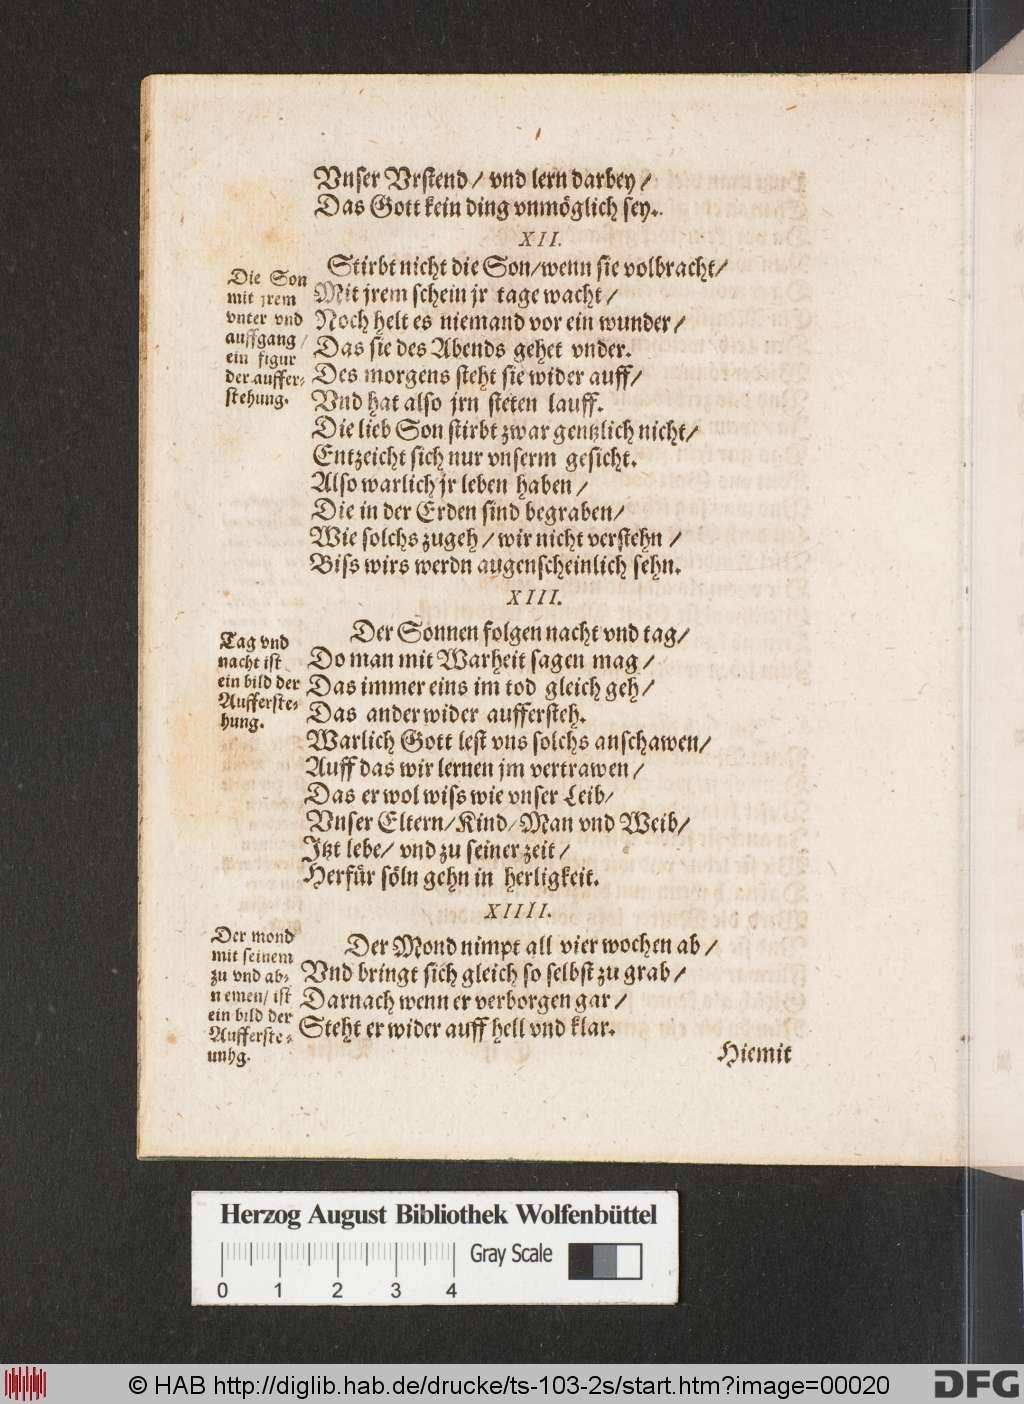 Vnser Vrstend/ vnd lern darbey/
Das Gott kein ding vnmöglich sey.
XII.
Stirbt nicht die Son/wenn sie volbracht/
Mit jrem schein jr tage wacht/
Noch helt es niemand vor ein wunder/
Das sie des Abends gehet vnder.
Des morgens steht sie wider auff/
Vnd hat also jrn steten lauff.
Die lieb Son stirbt zwar gentzlich nicht/
Entzeicht sich nur vnserm gesicht.
Also warlich jr leben haben/
Die in der Erden sind begraben/
Wie solchs zugeh/wir nicht verstehn/
Biss wirs werdn augenscheinlich sehn.
Die Son
mit jrem
vnter vnd
auffgang/
ein figur
der auffer-
stehung.
XIII.
Der Sonnen folgen nacht vnd tag/
Do man mit Warheit sagen mag/
Das immer eins im tod gleich geh/
Das ander wider auffersteh.
Warlich Gott lest vns solchs anschawen/
Auff das wir lernen jm vertrawen/
Das er wol wiss wie vnser Leib/
Vnser Eltern/Kind/Man vnd Weib/
Itzt lebe/ vnd zu seiner zeit/
Herfür söln gehn in herligkeit.
Tag vnd
nacht ist
ein bild der
Aufferste-
hung.
XIIII.
Der Mond nimpt all vier wochen ab/
Vnd bringt sich gleich so selbst zu grab/
Darnach wenn er verborgen gar/
Steht er wider auff hell vnd klar.
Der mond
mit seinem
zu vnd ab-
nemen/ ist
ein bild der
Aufferste-
unhg.
Hiemit
Herzog August Bibliothek Wolfenbüttel
Gray Scale
0 1 2 3 4
© HAB http://diglib.hab.de/drucke/ts-103-2s/start.htm?image=00020
DFG